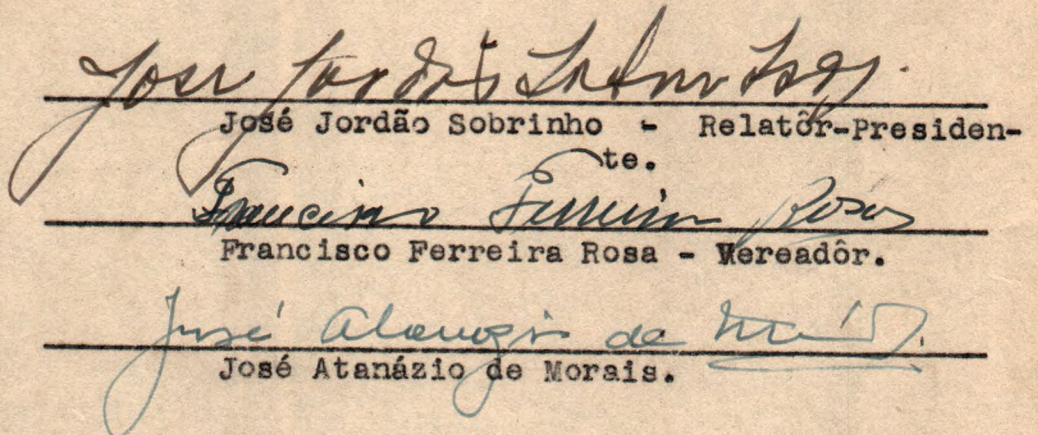 José Jordão Sobrinho
José Jordão Sobrinho - Relatôr-Presiden-
te.
Francisco Ferreira Rosa
Francisco Ferreira Rosa - Vereadôr.
José Atanázio de Morais
José Atanázio de Morais.